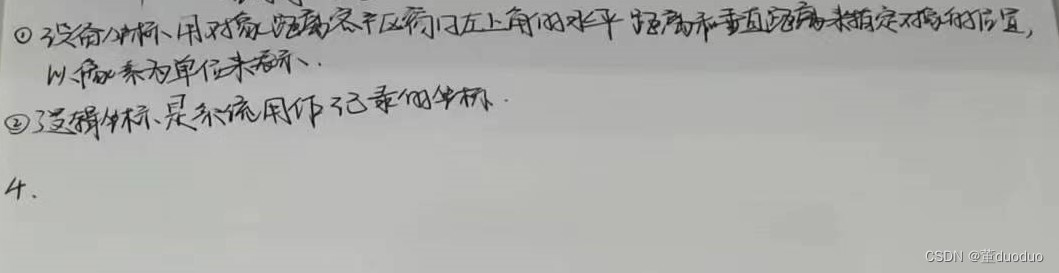 ①设备坐标、用对象距离客户区窗口左上角的水平距离和垂直距离来指定对象的位置,
以像素为单位来表示、
②逻辑坐标、是系统用作记录的坐标.
4.
CSDN @董duoduo